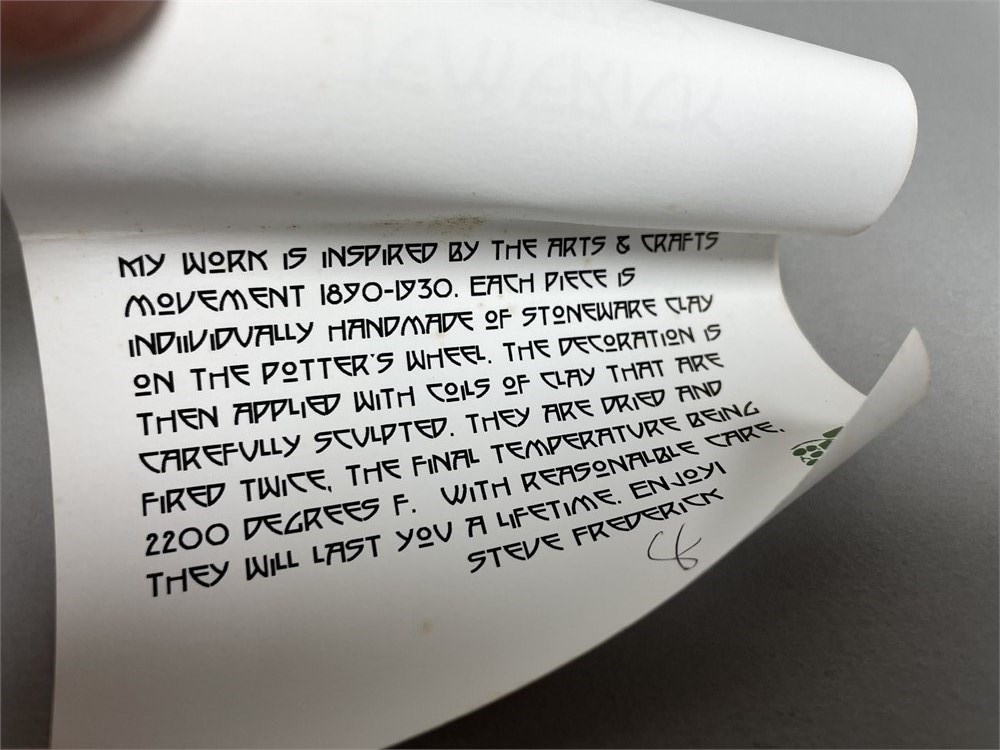 MY WORK IS INSPIRED BY THE ARTS & CRAFTS
MOVEMENT 1890-1930. EACH PIECE IS
INDIIVIDUALLY HANDMADE OF STONEWARE CLAY
ON THE POTTER'S WHEEL. THE DECORATION IS
THEN APPLIED WITH COILS OF CLAY THAT ARE
CAREFULLY SCULPTED. THEY ARE DRIED AND
FIRED TWICE, THE FINAL TEMPERATURE BEING
2200 DEGREES F. WITH REASONALBLE CARE,
THEY WILL LAST YOU A LIFETIME. ENJOY!
STEVE FREDERICK